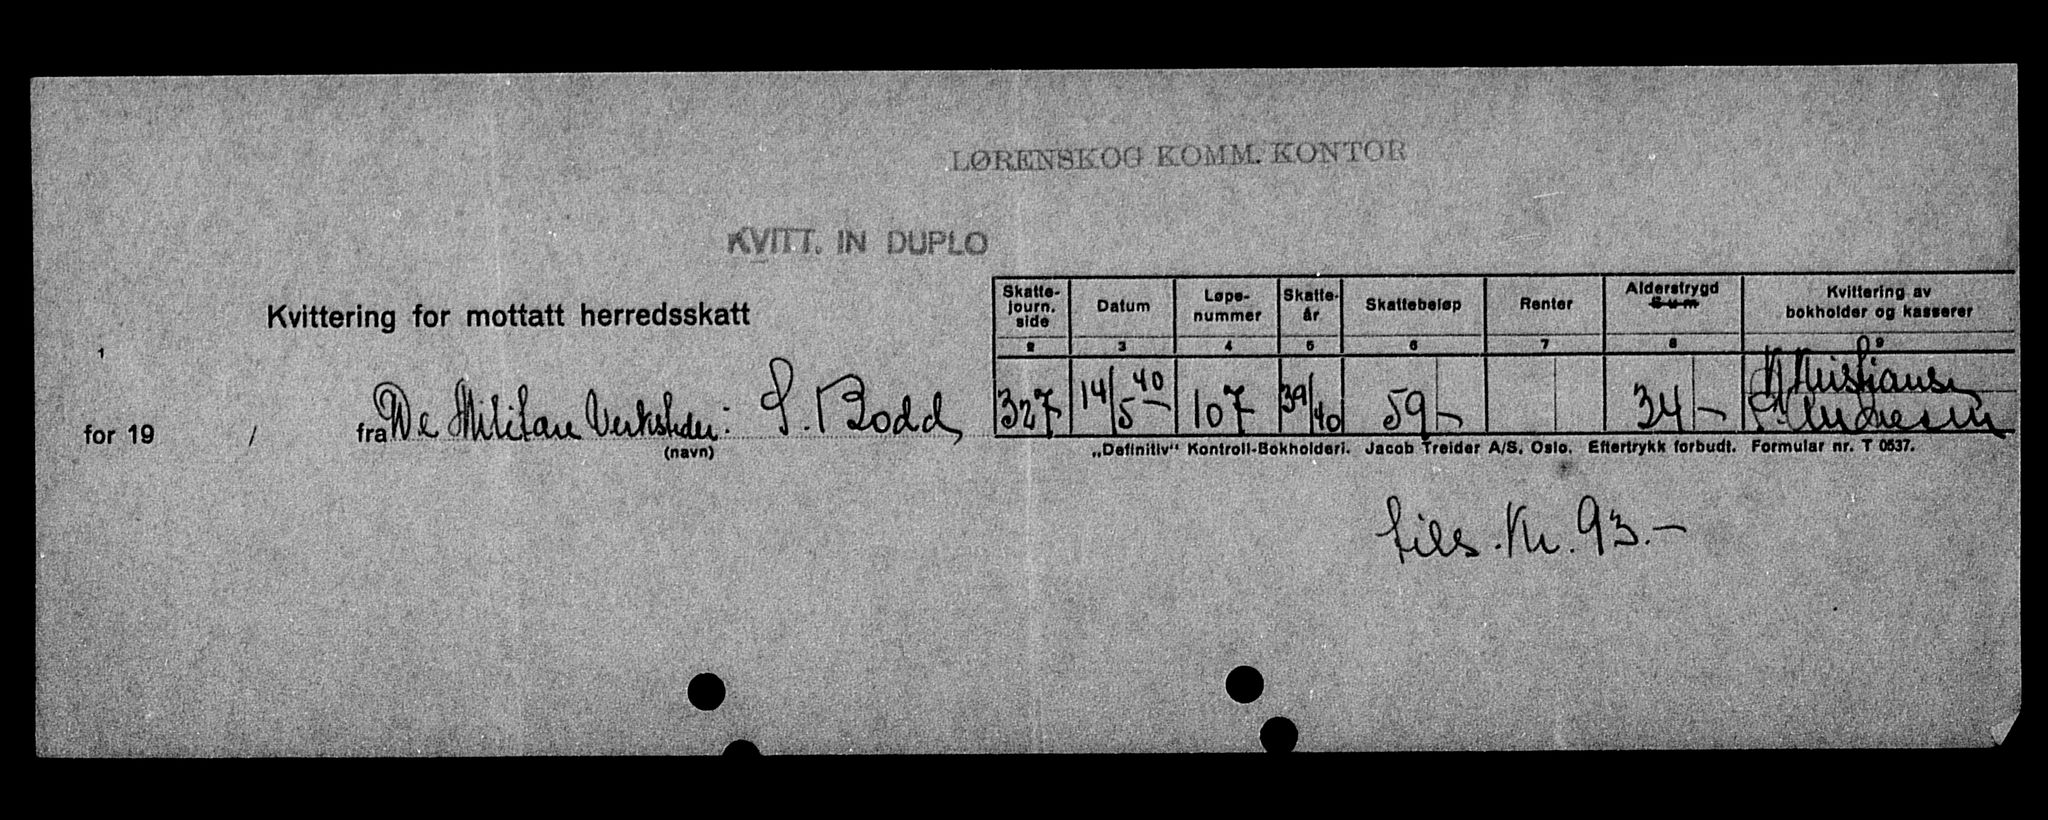 LØRENSKOG KOMM. KONTOR
KVITT. IN DUPLO
Kvittering for mottatt herredsskatt
Skatte-journ. side Datum Løpe-nummer Skatte-år Skattebeløp Renter Alderstrygd Sum Kvittering av bokholder og kasserer
1 2 3 4 5 6 7 8 9
for 19 / fra De Militære Verksteder: S. Bodd, 327 14/5 40 107 39/40 59 – 34 –
(navn)
„Definitiv" Kontroll-Bokholderi. Jacob Treider A/S. Oslo. Eftertrykk forbudt. Formular nr. T 0537.
tils. Kr. 93.–